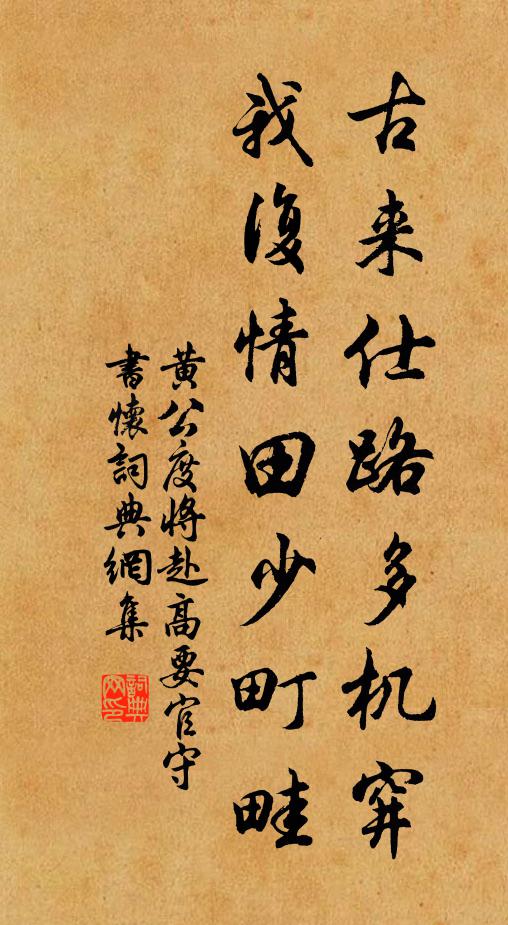 古来仕路多机穽
我復情田少町畦
黄公度将赴高要官守
書懷詞典網集
詞典網印